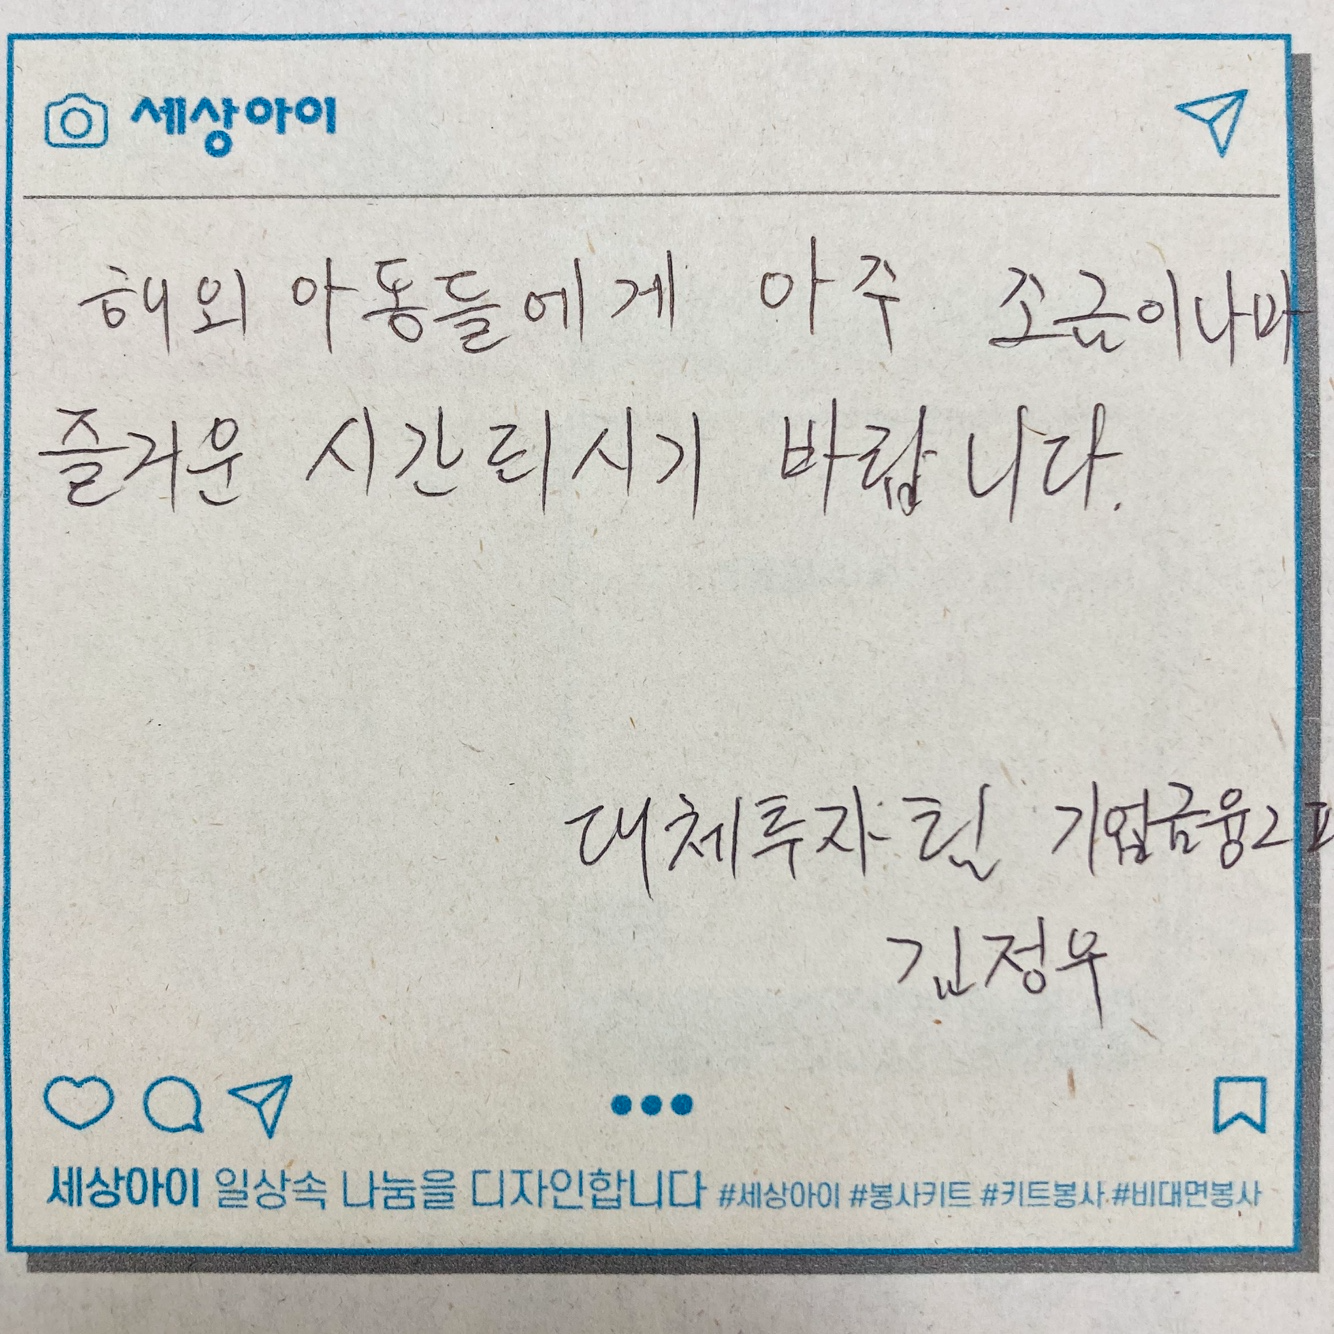 세상아이
해외 아동들에게 아주 조금이나마
즐거운 시간되시기 바랍니다.
대체투자팀 기업금융2
김정우
세상아이 일상속 나눔을 디자인합니다 #세상아이 #봉사키트 #키트봉사 #비대면봉사